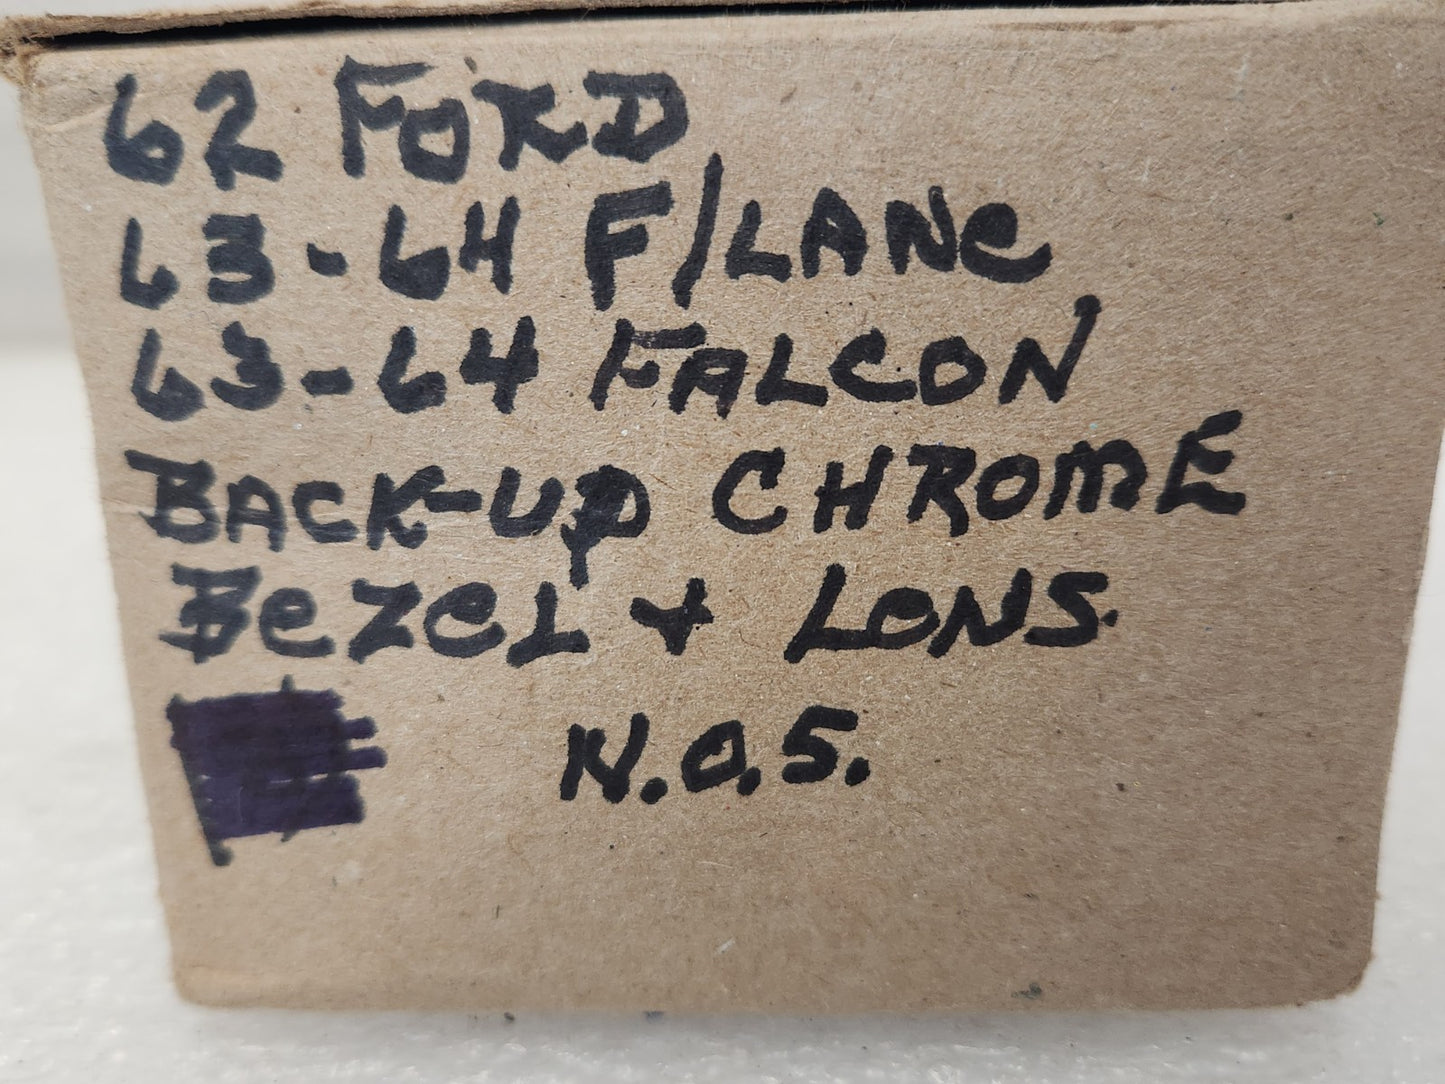 62 FORD
63-64 F/LANe
63-64 FALCON
BACK-UP CHROME
BeZeL + LeNS.
N.O.S.